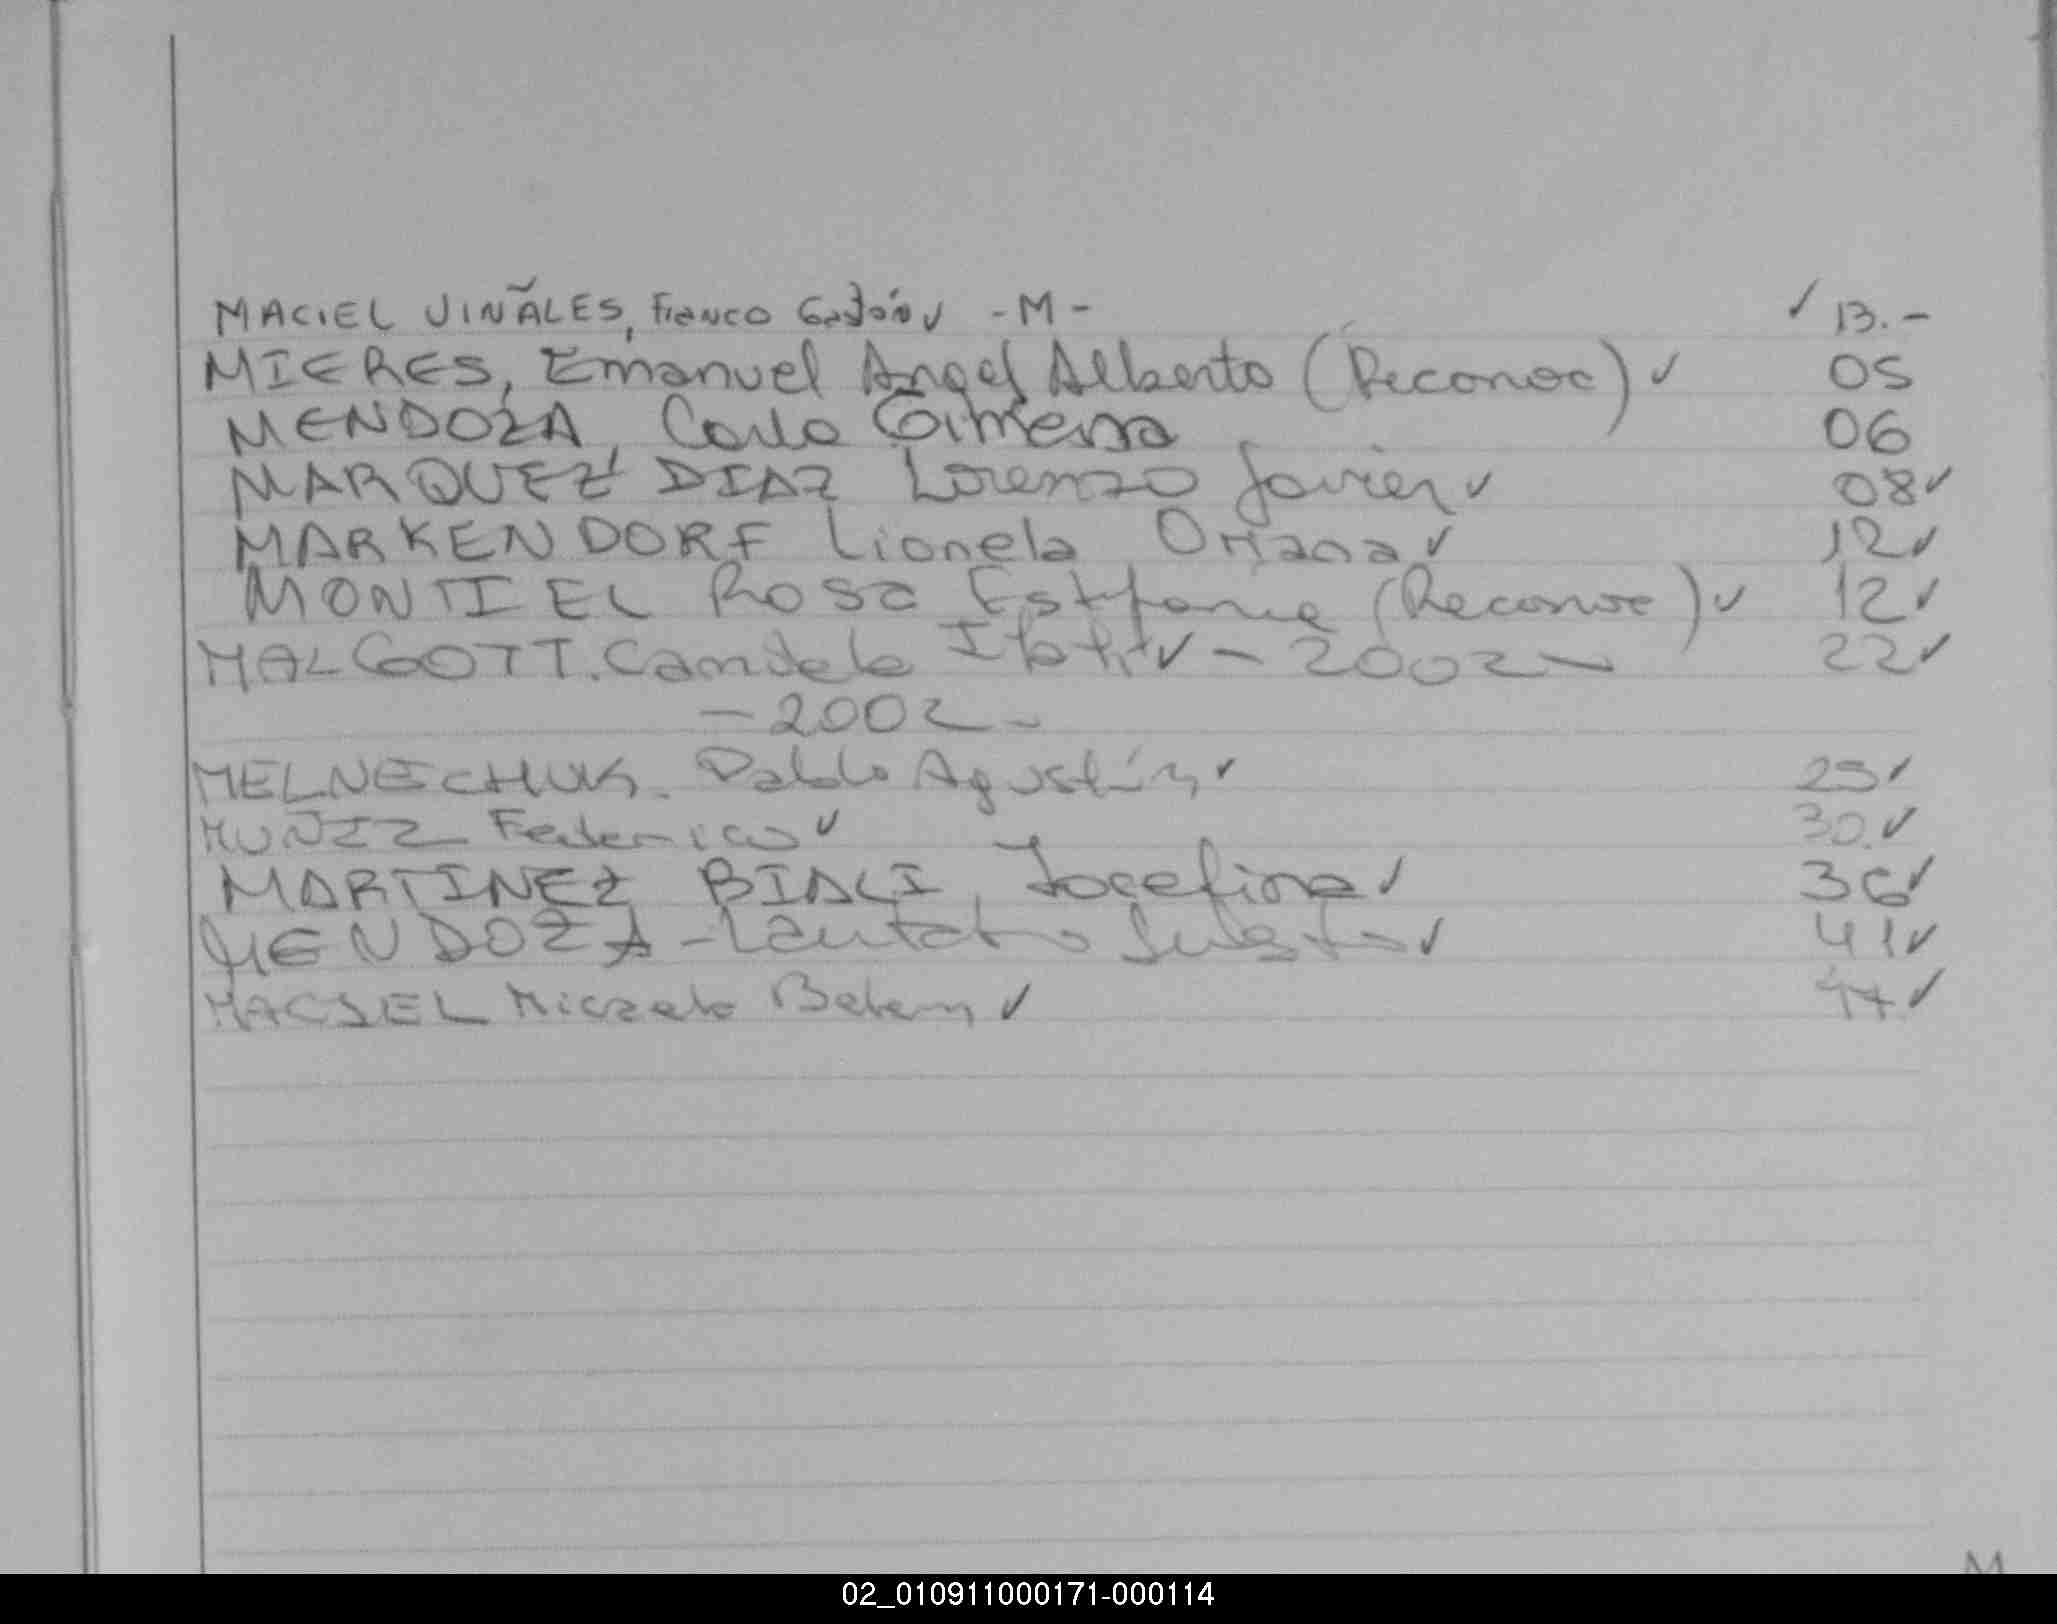 MACIEL VIÑALES, Franco Gastón ✓ -M- ✓ 13.-
MIERES, Emanuel Angel Alberto (Reconoc) ✓ 05
MENDOZA, Carla Gimena 06
MARQUEZ DIAZ Lorenzo Javier ✓ 08 ✓
MARKENDORF Lionela Oriana ✓ 12 ✓
MONTIEL Rosa Estefania (Reconoc) ✓ 12 ✓
MALGOTT. Candela Itatí ✓ - 2002 - 22 ✓
- 2002 -
MELNECHUK. Pablo Agustín ✓ 25 ✓
MUÑIZ Federico ✓ 30. ✓
MARTINEZ BIALI, Josefina ✓ 36 ✓
MENDOZA - Lautaro ✓ 41 ✓
MACIEL Micaela Belem ✓ 47 ✓
M
02_010911000171-000114